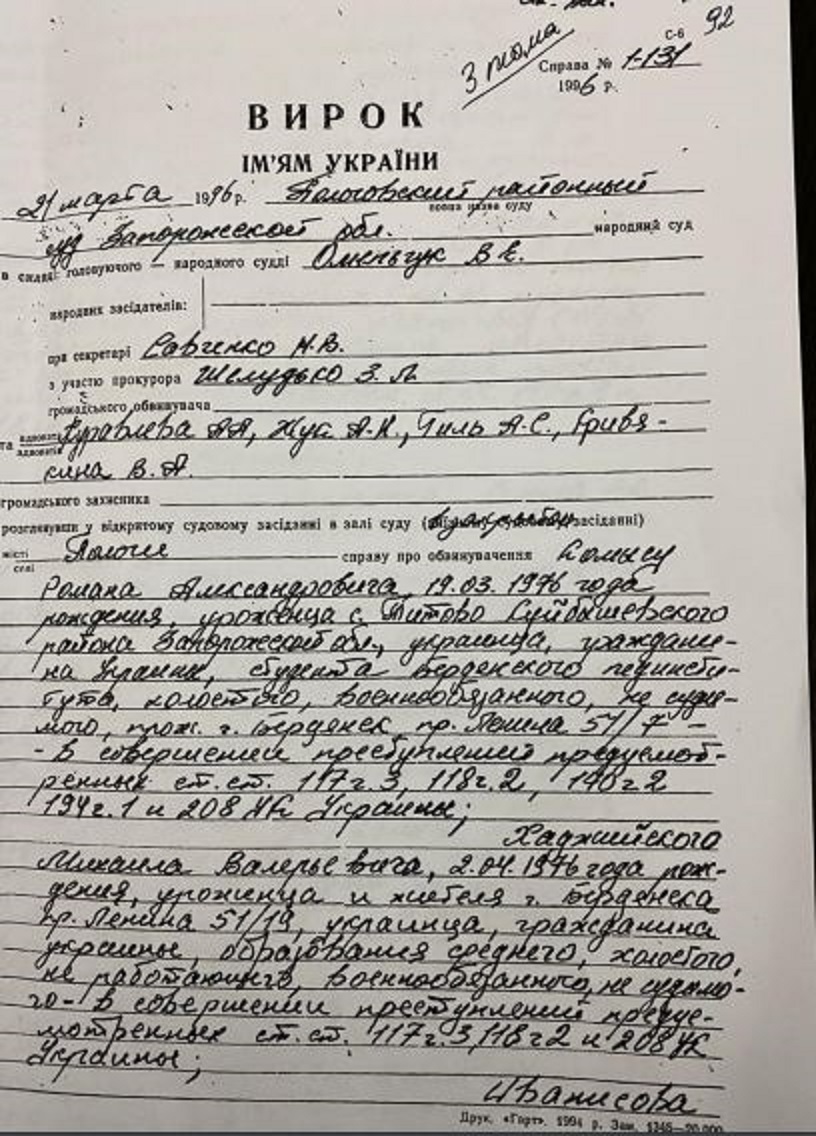 92
С-6
3 тома
Справа № 1-131
1996 р.
ВИРОК
ІМ'ЯМ УКРАЇНИ
21 марта 1996 р. Пологовский районный
повна назва суду
суд Запорожской обл. народний суд
в складі: головуючого — народного судді Омельчук В.Е.
народних засідателів:
при секретарі Савченко Н.В.
з участю прокурора Шелудько З.Л.
громадського обвинувача
та адвоката адвокатів Журавлева А.А., Жук А.Н., Гиль А.С., Гривя-
кина В.А.
громадського захисника
розглянувши у відкритому судовому засіданні в залі суду (засіданні)
місті селі Пологи справу про обвинувачення Комысу
Романа Александровича, 19.03.1976 года
рождения, уроженца с. Титово Куйбышевского
района Запорожской обл., украинца, граждани-
на Украины, студента Бердянского пединсти-
тута, холостого, военнообязанного, не суди-
мого, прож. г. Бердянск, пр. Ленина 51/7 -
- в совершении преступлений предусмот-
ренных ст.ст. 117 ч.3, 118 ч.2, 140 ч.2
194 ч.1 и 208 УК Украины;
Хаджийского
Михаила Валерьевича, 2.04.1976 года рож-
дения, уроженца и жителя г. Бердянска
пр. Ленина 51/19, украинца, гражданина
украины, образования среднего, холостого,
не работающего, военнообязанного, не судимо-
го - в совершении преступлений предус-
мотренных ст.ст. 117 ч.3, 118 ч 2 и 208 УК
Украины;
Иванисова
Друк. «Гарт». 1994 р. Зам. 1348—20.000